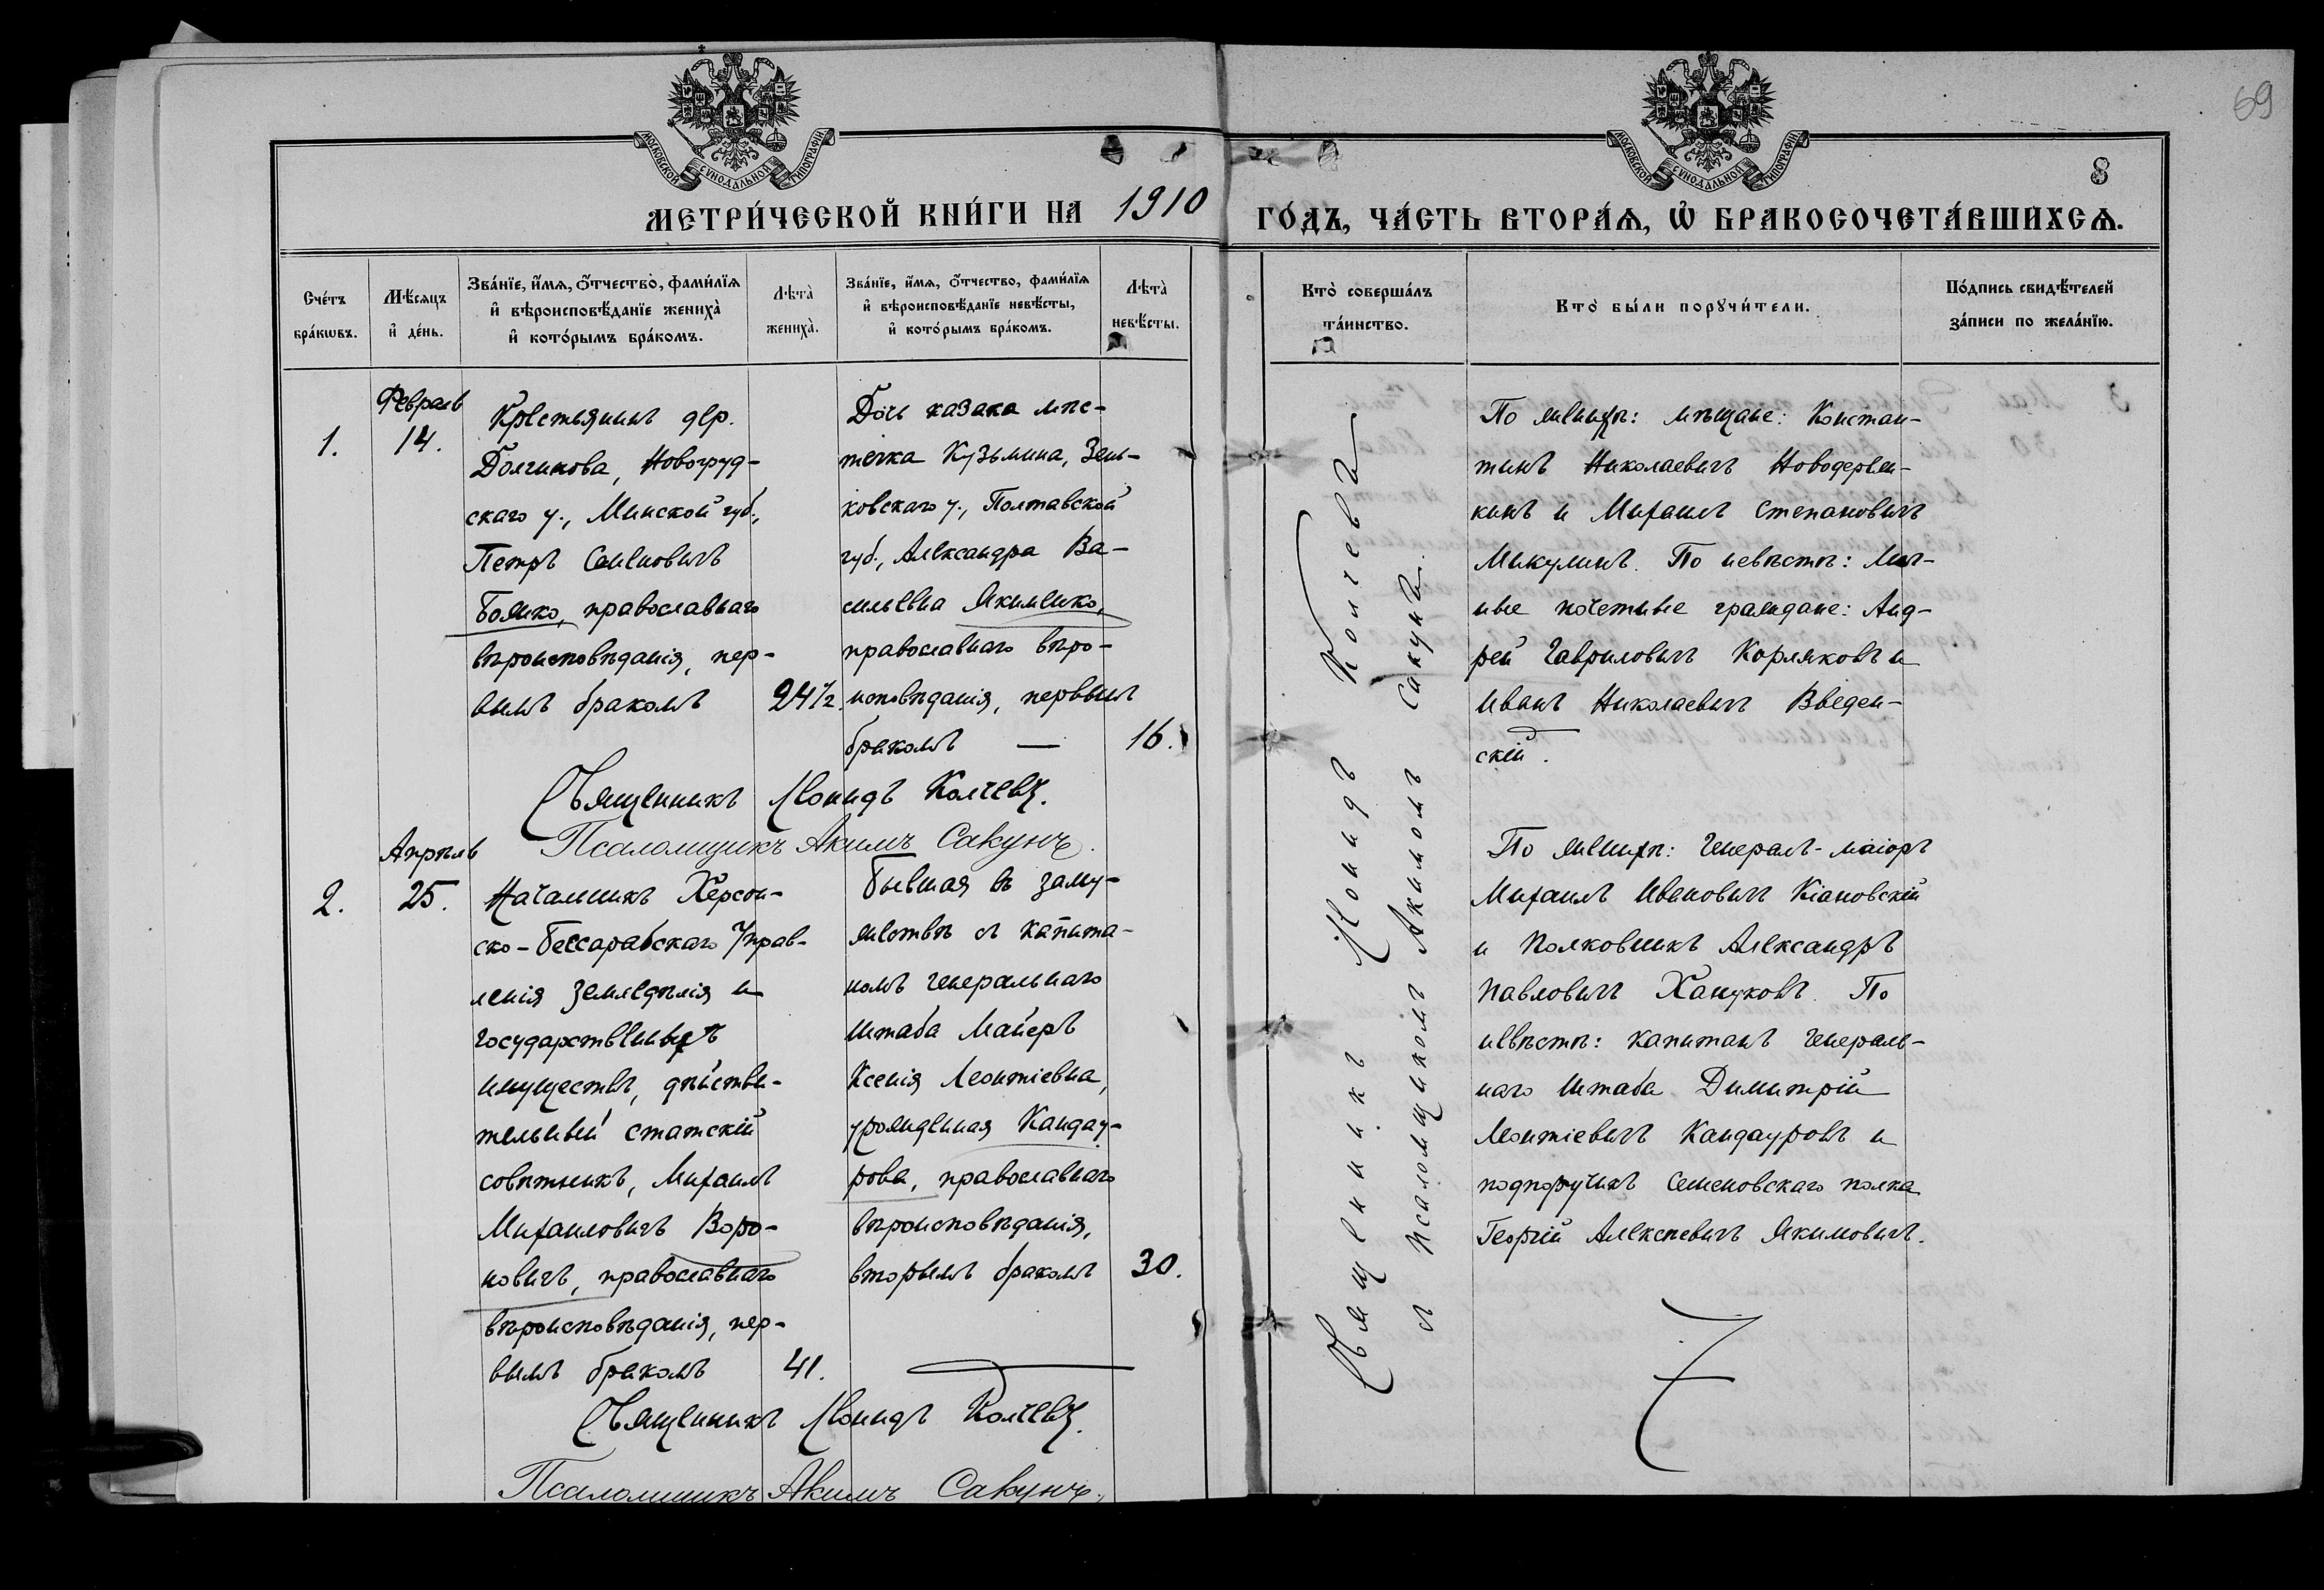 69
МОСКОВСКОЙ СѴНОДАЛЬНОЙ ТИПОГРАФІИ
МОСКОВСКОЙ СѴНОДАЛЬНОЙ ТИПОГРАФІИ
8
МЕТРИ́ЧЕСКОЙ КНИ́ГИ НА 1910 ГО́ДЪ, ЧА́СТЬ ВТОРА́Ѧ, Ѽ БРАКОСОЧЕТА́ВШИХСѦ.
Сче́тъ
бра́кѡвъ.
Мѣ́сяцъ
и҆ де́нь.
Зва́нїе, и҆́мѧ, ѻ҆́тчество, фами́лїя
и҆ вѣроисповѣ́данїе жениха̀
и҆ кото́рымъ бра́комъ.
Лѣта̀
жениха̀.
Зва́нїе, и҆́мѧ, ѻ҆́тчество, фами́лїя
и҆ вѣроисповѣ́данїе невѣ́сты,
и҆ кото́рымъ бра́комъ.
Лѣта̀
невѣ́сты.
Кто̀ соверша́лъ
та́инство.
Кто̀ бы́ли порꙋчи́тели.
По́дпись свидѣ́телей
за́писи по жела́нїю.
1.
Февраль
14.
Крестьянинъ дер.
Долгинова, Новогруд-
скаго у., Минской губ.,
Петръ Семеновичъ
Божко, православнаго
вѣроисповѣданія, пер-
вымъ бракомъ
24½.
Дочь казака мѣс-
течка Кузьмина, Зень-
ковскаго у., Полтавской
губ., Александра Ва-
сильевна Якименко,
православнаго вѣро-
исповѣданія, первымъ
бракомъ —
16.
Священникъ Леонидъ Колчевъ.
Псаломщикъ Акимъ Сакунъ.
Священникъ Леонидъ Колчевъ
съ псаломщикомъ Акимомъ Сакунъ.
По женихѣ: мѣщане: Констан-
тинъ Николаевичъ Новодережн-
кинъ и Михаилъ Степановичъ
Микулинъ. По невѣстѣ: Лич-
ные почетные граждане: Анд-
рей Гавриловичъ Корляковъ и
Иванъ Николаевичъ Введен-
скій.
2.
Апрѣль
25.
Начальникъ Херсон-
ско-Бессарабскаго Управ-
ленія Земледѣлія и
Государственныхъ
имуществъ, дѣйстви-
тельный статскій
совѣтникъ, Михаилъ
Михаиловичъ Воро-
новичъ, православнаго
вѣроисповѣданія, пер-
вымъ бракомъ
41.
Бывшая въ заму-
жествѣ съ капита-
номъ генеральнаго
штаба Майеръ
Ксенія Леонтіевна,
урожденная Кандау-
рова, православнаго
вѣроисповѣданія,
вторымъ бракомъ
30.
Священникъ Леонидъ Колчевъ.
Псаломщикъ Акимъ Сакунъ.
По женихѣ: Генералъ-маіоръ
Михаилъ Ивановичъ Кіановскій
и Полковникъ Александръ
Павловичъ Хануковъ. По
невѣстѣ: капитанъ Генераль-
наго Штаба Димитрій
Леонтіевичъ Кандауровъ и
подпоручикъ Семеновскаго полка
Георгій Алексѣевичъ Якимовичъ.